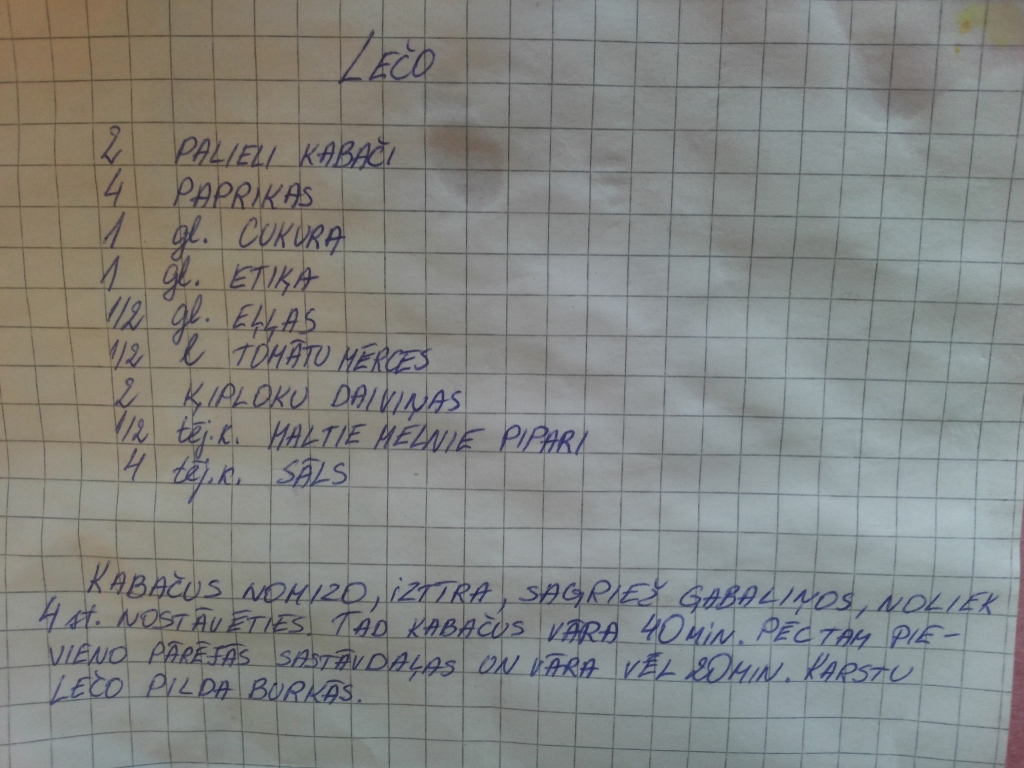 LEČO
2 PALIELI KABAČI
4 PAPRIKAS
1 gl. CUKURA
1 gl. ETIĶA
1/2 gl. EĻĻAS
1/2 l TOMĀTU MĒRCES
2 ĶIPLOKU DAIVIŅAS
1/2 tēj.k. MALTIE MELNIE PIPARI
4 tēj.k. SĀLS
KABAČUS NOMIZO, IZTĪRA, SAGRIEŽ GABALIŅOS, NOLIEK
4 st. NOSTĀVĒTIES. TAD KABAČUS VĀRA 40 MIN. PĒC TAM PIE-
VIENO PĀRĒJĀS SASTĀVDAĻAS UN VĀRA VĒL 20 MIN. KARSTU
LEČO PILDA BURKĀS.